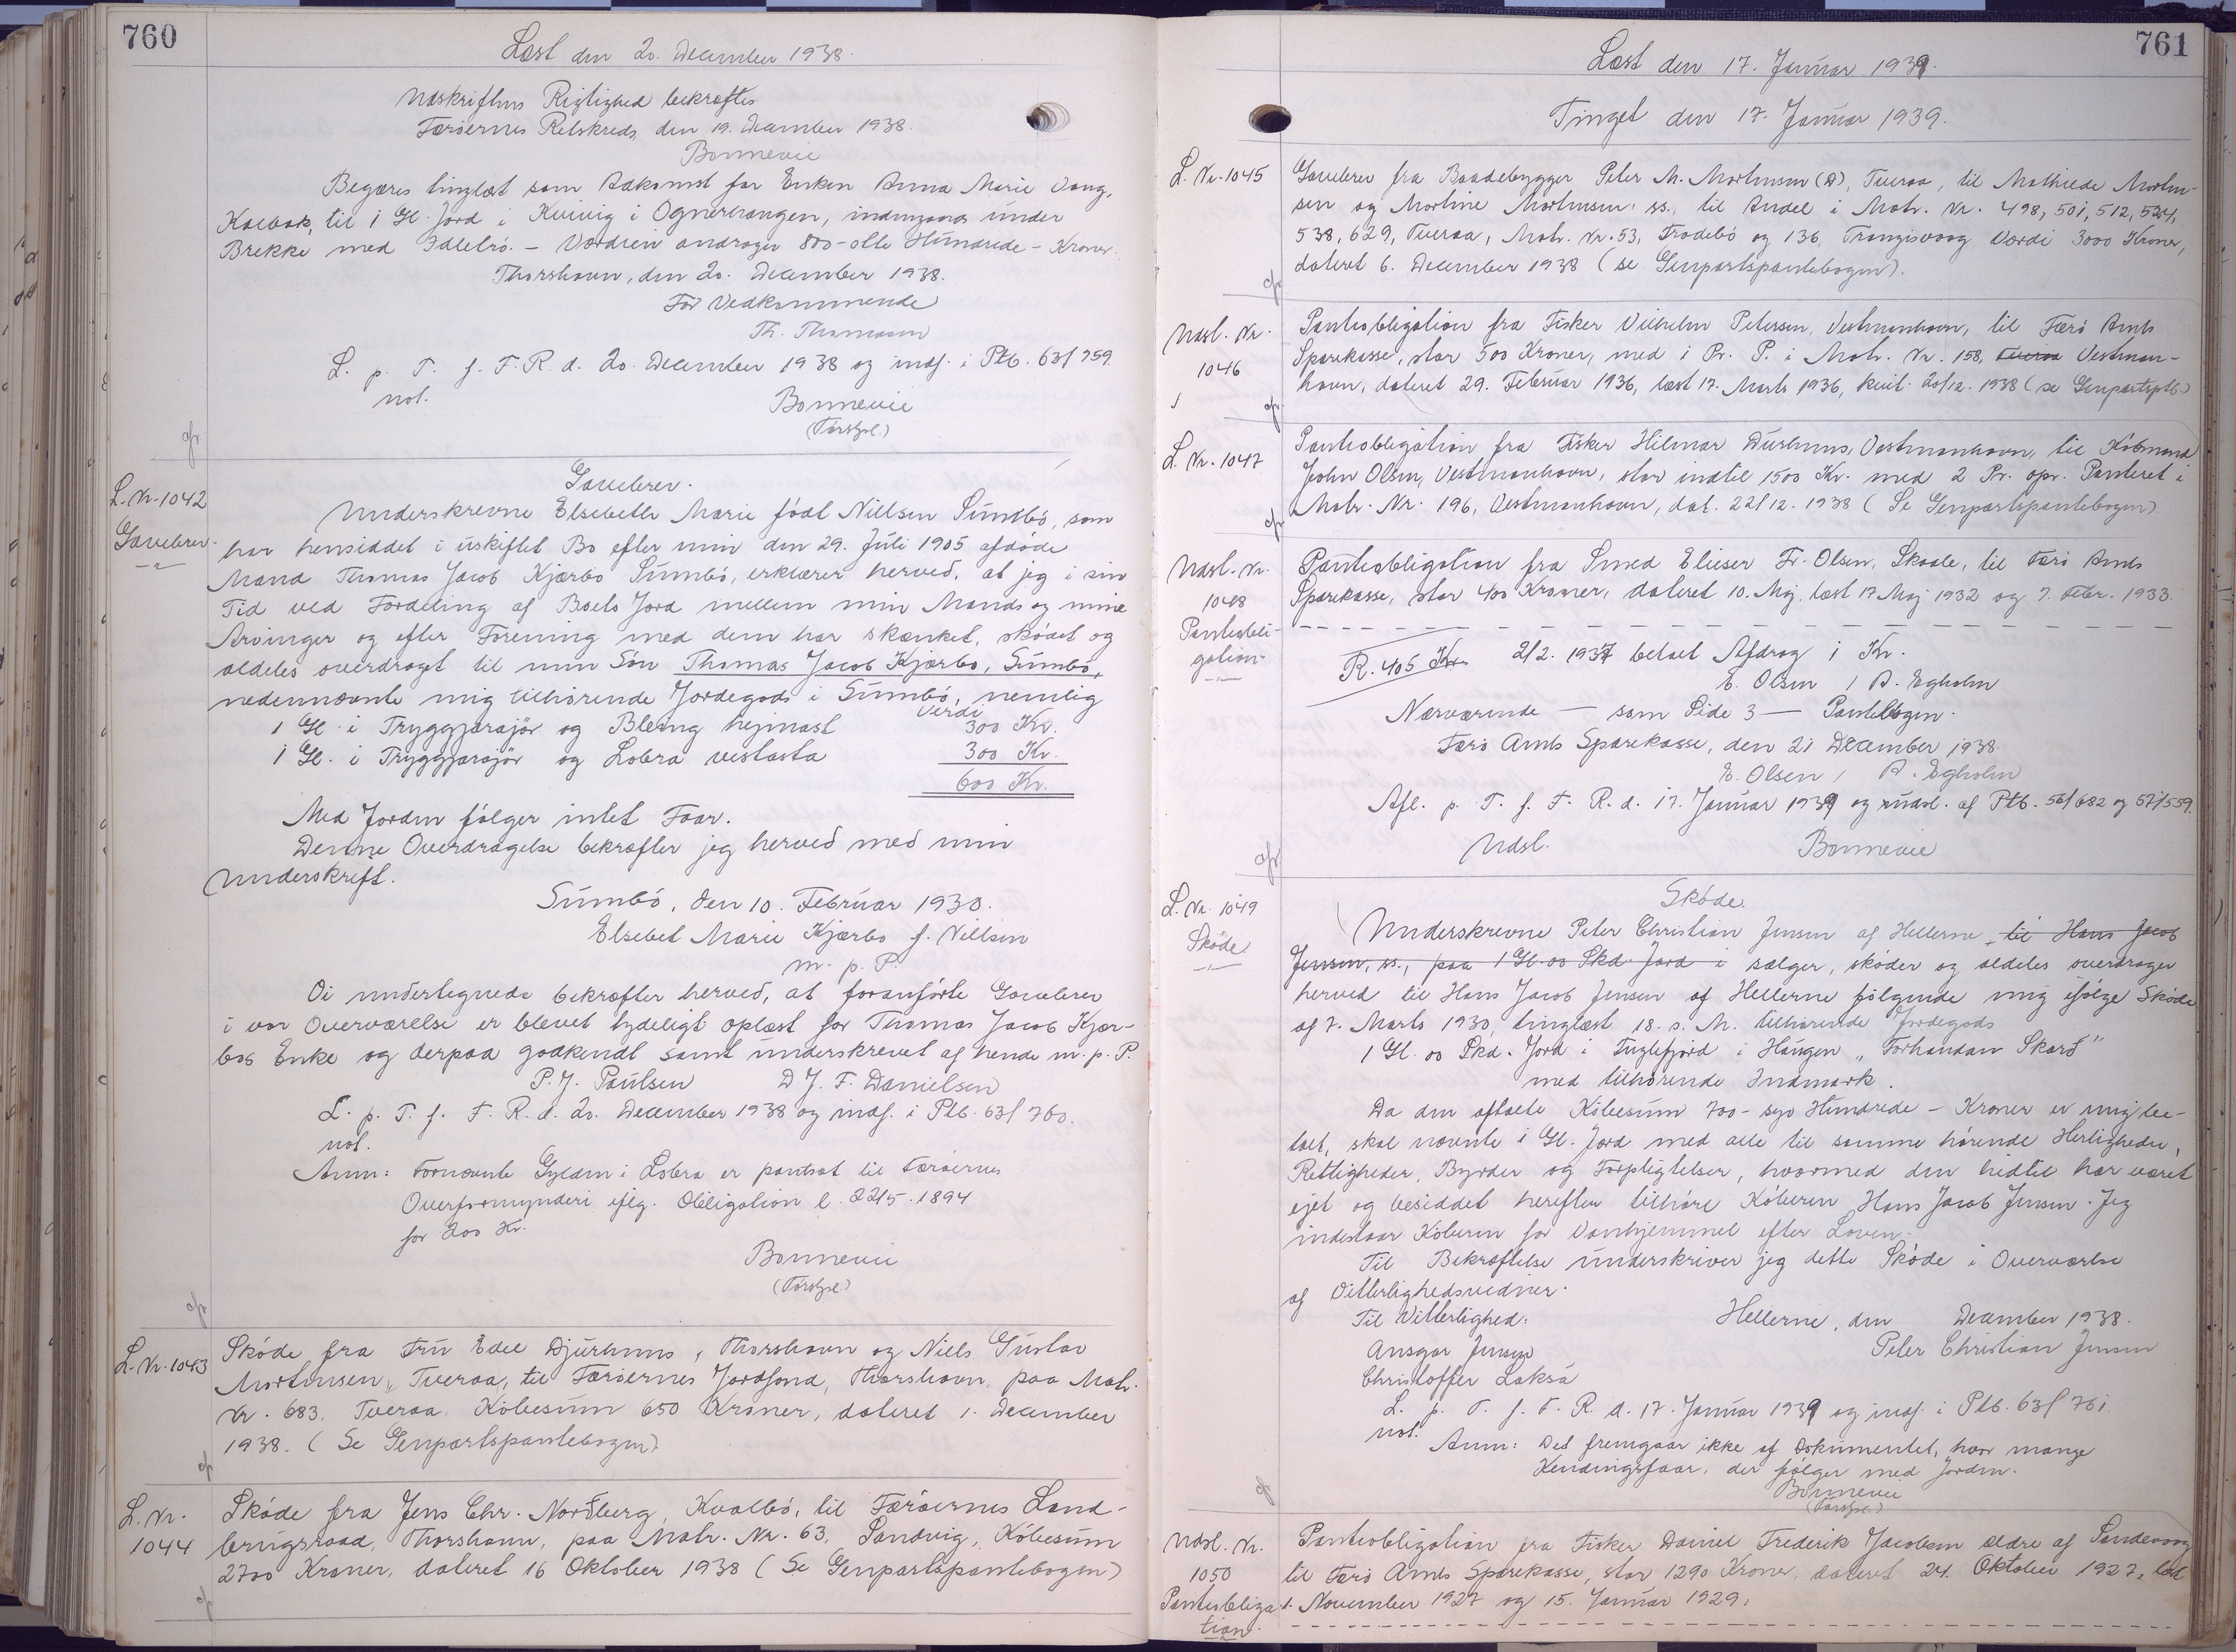 760
Læst den 20. December 1938.
Udskriftens Rigtighed bekræftes
Færøernes Retskreds, den 19. December 1938.
Bonnevie
Begæres tinglæst som Adkomst for Enken Anna Marie Vang,
Kolbak, til 1 Gl. Jord i Kvivig i Ognerhaugen, indengaards under
Brekke med Idlebrö. - Værdien andrager 800 - otte Hundrede - Kroner.
Thorshavn, den 20. December 1938.
For Vedkommende
Th. Thomasen
L. p. T. f. F. R. d. 20. December 1938 og indf. i Ptb. 63/759.
not.
Bonnevie
(Førstfæl.)
L. Nr. 1042
Gavebrev.
Gavebrev.
Underskrevne Elsebeth Marie født Nielsen Sumbö, som
har hensiddet i uskiftet Bo efter min den 29. Juli 1905 afdöde
Mand Thomas Jacob Kjærbo Sumbö, erklærer herved, at jeg i sin
Tid ved Fordeling af Boets Jord mellem min Mands og mine
Arvinger og efter Forening med dem har skænket, skødet og
aldeles overdraget til min Sön Thomas Jacob Kjærbo, Sumbö,
nedennævnte mig tilhørende Jordegods i Sumbö, nemlig
Værdi
1 Gl. i Tryggjarajör og Bleing hejmast 300 Kr.
1 Gl. i Tryggjarajör og Lobra vestasta 300 Kr.
600 Kr.
Med Jorden fölger intet Faar.
Denne Overdragelse bekræfter jeg herved med min
Underskrift.
Sumbö, den 10. Februar 1930.
Elsebet Marie Kjærbo f. Nielsen
m. p. P.
Vi undertegnede bekræfter herved, at foranförte Gavebrev
i vor Overværelse er blevet tydeligt oplæst for Thomas Jacob Kjær-
bos Enke og derpaa godkendt samt underskrevet af hende m. p. P.
P. J. Poulsen D. J. F. Danielsen
L. p. T. f. F. R. d. 20. December 1938 og indf. i Ptb. 63/760.
not.
Anm: Fornævnte Gylden i Lobra er pantsat til Færöernes
Overformynderi eflg. Obligation l. 22/5. 1894
for 200 Kr.
Bonnevie
L. Nr. 1043
Sköde fra Fru Edel Djurhuus, Thorshavn og Niels Gustav
Mortensen, Tveraa, til Færöernes Jordfond, Thorshavn, paa Matr.
Nr. 683, Tveraa. Köbesum 650 Kroner, dateret 1. December
1938. (Se Genpartspantebogen)
L. Nr.
1044
Sköde fra Jens Chr. Nordberg, Kvalbö, til Færöernes Land-
brugsraad, Thorshavn, paa Matr. Nr. 63, Sandvig, Köbesum
2700 Kroner, dateret 16 Oktober 1938 (Se Genpartspantebogen)
761
Læst den 17. Januar 1939.
Tinget den 17. Januar 1939.
L. Nr. 1045
Gavebrev fra Baadebygger Peter M. Mortensen (D), Tveraa, til Mathilde Morten-
sen og Martine Mortensen, ss., til Andel i Matr. Nr. 498, 501, 512, 524,
538, 629, Tveraa, Matr. Nr. 53, Frodebö og 136, Trangisvaag Værdi 3000 Kroner,
dateret 6. December 1938 (se Genpartspantebogen).
Udsl. Nr.
1046
Panteobligation fra Fisker Vilhelm Petersen, Vestmanhavn, til Færö Amts
Sparekasse, stor 500 Kroner, med 1 Pr. P. i Matr. Nr. 158, Tveraa Vestman-
havn, dateret 29. Februar 1936, læst 17. Marts 1936, kvit. 20/12. 1938 (se Genpartsptb.)
L. Nr. 1047
Panteobligation fra Fisker Hilmar Durhuus, Vestmanhavn, til Købmand
John Olsen, Vestmanhavn, stor indtil 1500 Kr. med 2 Pr. opr. Panteret i
Matr. Nr. 196, Vestmanhavn, dat. 22/12. 1938 (Se Genpartspantebogen)
Udsl. Nr.
1048
Panteobli-
gation.
Panteobligation fra Smed Elieser Fr. Olsen, Skaale, til Færö Amts
Sparekasse, stor 400 Kroner, dateret 10. Maj, læst 17 Maj 1932 og 7. Febr. 1933.
R. 405 Kr. 2/2. 1937 betalt Afdrag 1 Kr.
E. Olsen / A. Egholm
Nærværende — som Side 3 — Pantebogen.
Færö Amts Sparekasse, den 21 December 1938.
E. Olsen / A. Egholm
Afl. p. T. f. F. R. d. 17. Januar 1939 og udsl. af Ptb. 56/682 og 57/559.
Udsl. Bonnevie
L. Nr. 1049
Sköde
Sköde.
Underskrevne Peter Christian Jensen af Hellerne, til Hans Jacob
Jensen, ss., paa 1 Gl. 00 Skd. Jord i sælger, sköder og aldeles overdrager
herved til Hans Jacob Jensen af Hellerne fölgende mig ifölge Sköde
af 7. Marts 1930, tinglæst 18. s. M. tilhørende Jordegods
1 Gl. 00 Skd. Jord i Fuglefjord i Haugen "Forhandan Skard"
med tilhörende Indmark.
Da den aftalte Köbesum 700 - syv Hundrede - Kroner er mig be-
talt, skal nævnte 1 Gl. Jord med alle til samme hörende Herligheder,
Rettigheder, Byrder og Forpligtelser, hvormed den hidtil har været
ejet og besiddet herefter tilhöre Köberen Hans Jacob Jensen. Jeg
indestaar Köberen for Vanhjemmel efter Loven.
Til Bekræftelse underskriver jeg dette Sköde i Overværelse
af Vitterlighedsvidner.
Til Vitterlighed: Hellerne, den December 1938.
Ansgar Jensen Peter Christian Jensen
Christoffer Laksá
L. p. T. f. F. R. d. 17. Januar 1939 og indf. i Ptb. 63/761.
not.
Anm: Det fremgaar ikke af Dokumentet, hvor mange
Kendingsfaar, der følger med Jorden.
Bonnevie
Udsl. Nr.
1050
Panteobliga
tion.
Panteobligation fra Fisker Daniel Frederik Jacobsen ældre af Sandevaag
til Færö Amts Sparekasse, stor 1290 Kroner, dateret 24. Oktober 1927, læst
1. November 1927 og 15. Januar 1929.